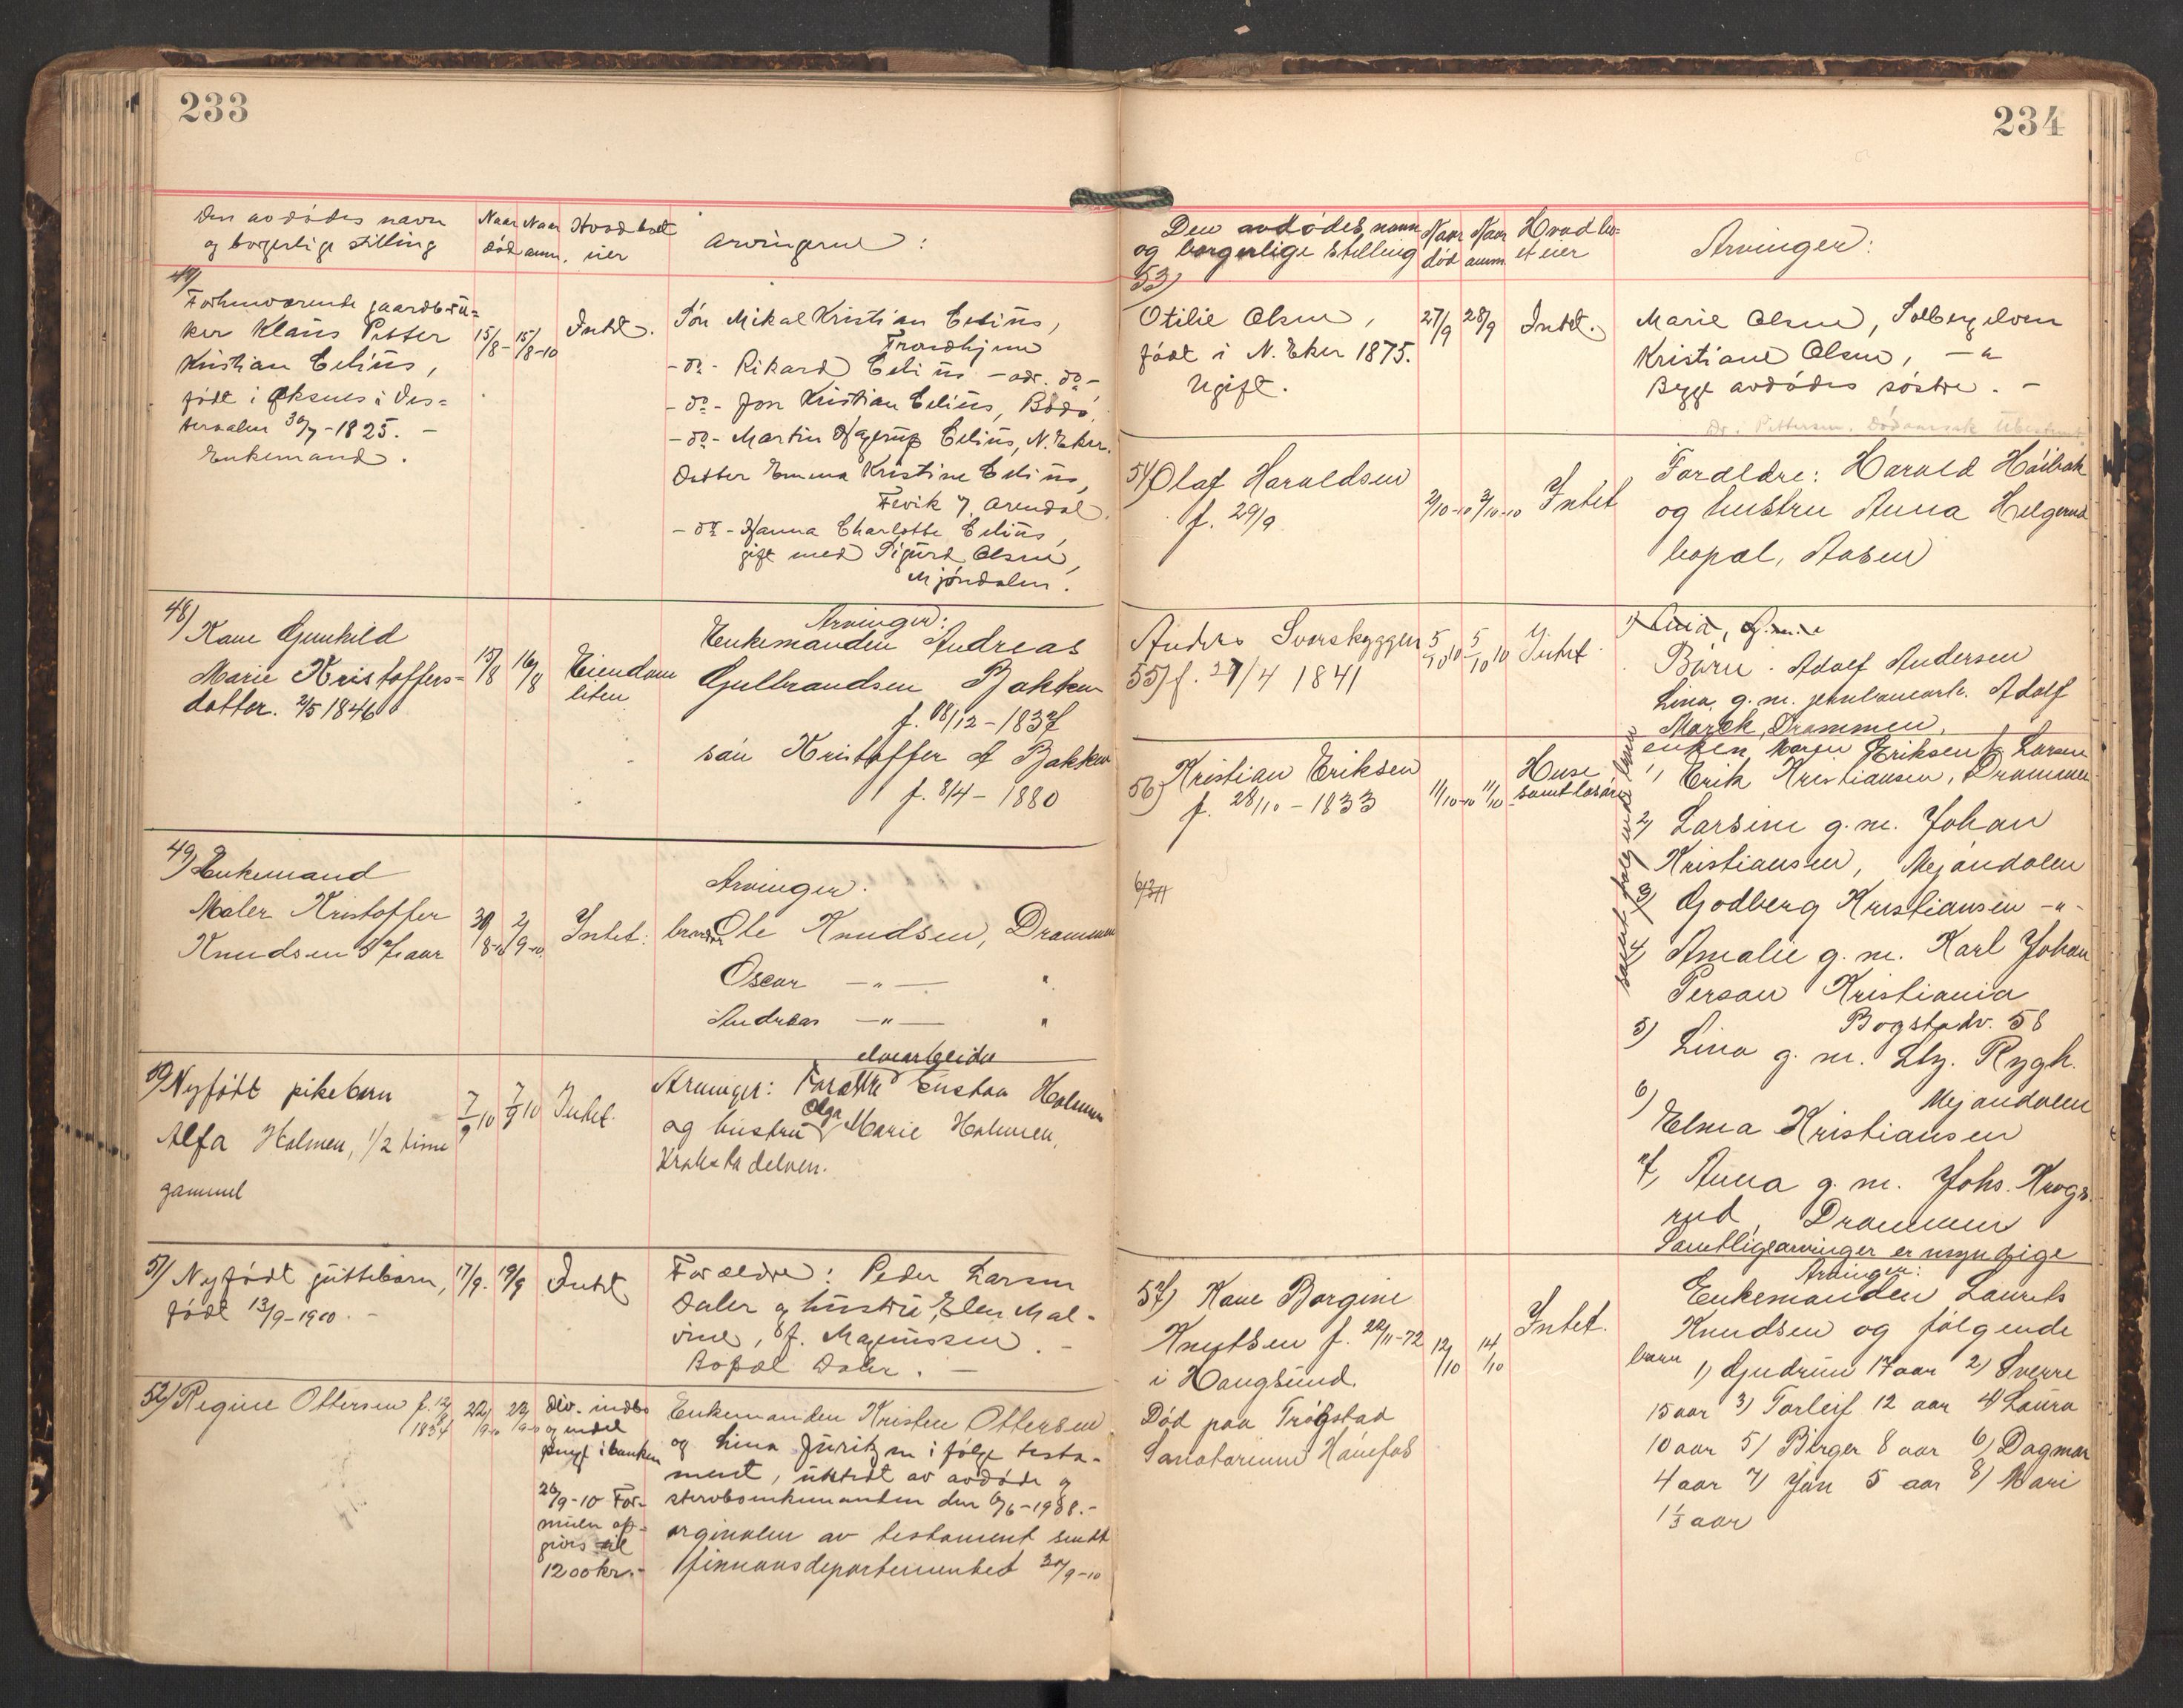 233
Den avdødes navn
og borgerlige stilling
Naar død
Naar anm.
Hvad boet eier
Arvingerne:
47)
Forhenværende gaardbru=
ker Klaus Petter
Kristian Celius,
født i Øksnes i Ves=
teraalen 30/7-1825. -
Enkemand.
15/8-
15/8-10
Intet.
Søn Mikal Kristian Celius,
Trondhjem
-do- Rikard Celius - adr. do-
-do- Jon Kristian Celius, Bodø
-do- Martin Hagerup Celius, N. Eker.
Datter Emma Kristine Celius,
Fevik p. Arendal.
-do- Hanna Charlotte Celius,
gift med Sigurd Olsen,
Mjøndalen.
48)
Kane Gunhild
Marie Kristoffers=
datter. 2/5 1846
15/8
16/8
Eiendom
liten
Arvinger:
Enkemanden Andreas
Gulbrandsen Bakken
f. 08/12-1837
søn Kristoffer A Bakken
f. 8/4-1880
49) Enkemand
Maler Kristoffer
Knudsen 57 aar
30/8-10
2/9-10
Intet.
Arvinger.
brødre Ole Knudsen, Drammen
Oscar -"- "
Andreas -"- "
50) Nyfødt pikebarn
Alfa Holmen, 1/2 time
gammel
7/9 10
7/9 10
Intet.
elvearbeider
Arvinger: Forældre Gustav Holmen
og hustru Olga Marie Holmen,
Krokstadelven.
51) Nyfødt guttebarn,
født 13/9-1910. -
17/9.
19/9
Intet
Forældre: Peder Larsen
Daler og hustru, Elen Mal-
vine, f. Magnussen. -
Bopæl Daler. -
52) Regine Ottersen f. 12/8
1834
22/9-10
23/9-10
div. indbo
og endel
penge i banken
26/9-10 For-
muen op-
givis til
1200 kr. -
Enkemanden Kristen Ottersen
og Lina Juritzen i følge testa-
ment, utstedt av avdøde og
stervboenkemanden den 6/6-1908. -
orginalen av testament sendt
finnansdepartementet 30/9-10
234
Den avdødes navn
og borgerlige stilling
Naar død
Naar anm
Hvad bo=
et eier
Arvinger:
53)
Otilie Olsen,
født i N. Eker 1875.
Ugift.
27/9
28/9
Intet.
Marie Olsen, Solbergelven
Kristiane Olsen, -"-
Begge avdødes søstre. -
Dr. Pettersen. Dødsaarsak Ubestemt.
54) Olaf Haraldsen
f. 29/9
2/10-10
3/10-10
Intet
Forældre: Harald Høibak
og hustru Anna Helgerud
bopæl, Aasen
Anders Svarskyggen
55) f. 27/4 1841
5/10 10
5/10 10
Intet.
Børn. Adolf Andersen
Lina g. m. jernbanearb. Adolf
Marck, Drammen.
56) Kristian Eriksen
f. 28/10-1833
11/10-10
11/10
Huse
samt løsøre
enken Karen Eriksen f. Larsen
1) Erik Kristiansen, Drammen
2) Larsine g. m. Johan
Kristiansen, Mjøndalen
3) Godberg Kristiansen -"-
4) Amalie g. m. Karl Johan
Persson Kristiania
Bogstadv. 58
5) Lina g. m. Rygh.
Mjøndalen
6)
Elma Kristiansen
7) Anna g. m. Johs. Krogs-
rud Drammen
Samtlige arvinger er myndige
57) Kane Borgine
Knutsen f. 20/11-72
i Haugsund.
Død paa Trøgstad
Sanatorium Hønefos
12/10
14/10
Intet.
Arvinger:
Enkemanden Laurits
Knudsen og følgende
barn 1) Gudrun 17 aar 2) Sverre
15 aar 3) Torleif 12 aar 4) Laura
10 aar 5) Birger 8 aar 6) Dagmar
4 aar 7) Jon 5 aar 8) Kari
1 1/3 aar